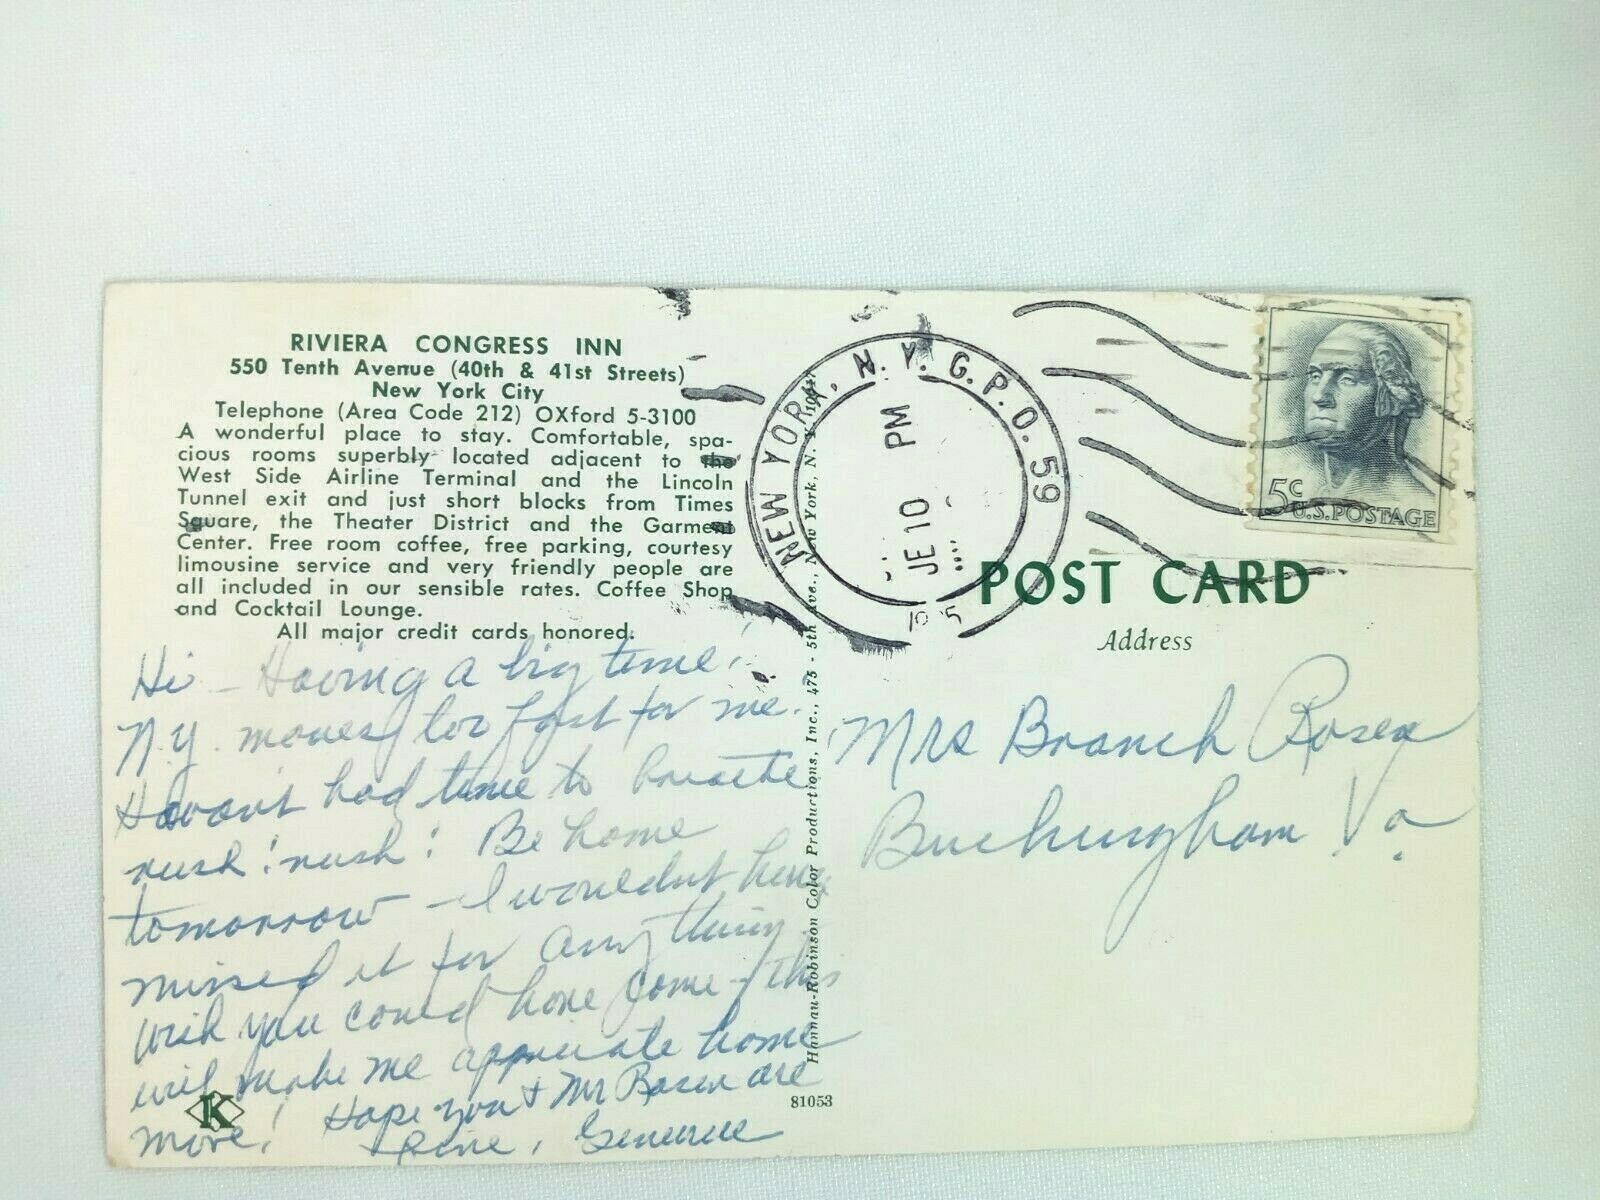 RIVIERA CONGRESS INN
550 Tenth Avenue (40th & 41st Streets)
New York City
Telephone (Area Code 212) OXford 5-3100
A wonderful place to stay. Comfortable, spa-
cious rooms superbly located adjacent to the
West Side Airline Terminal and the Lincoln
Tunnel exit and just short blocks from Times
Square, the Theater District and the Garment
Center. Free room coffee, free parking, courtesy
limousine service and very friendly people are
all included in our sensible rates. Coffee Shop
and Cocktail Lounge.
All major credit cards honored.
Hi - Having a big time!
N.Y. moves too fast for me.
Haven't had time to breathe
rush! rush! Be home
tomorrow - I wouldn't have
missed it for anything.
Wish you could have come - this
will make me appreciate home
more! Hope you & Mr Rosen are
fine, Genevieve
K
Hannau-Robinson Color Productions, Inc., 475 - 5th Ave., New York, N. Y.
81053
NEW YORK, N.Y. G.P.O. 59
PM
JE 10
5¢
U.S. POSTAGE
POST CARD
Address
Mrs Branch Rosen
Buckingham Va.